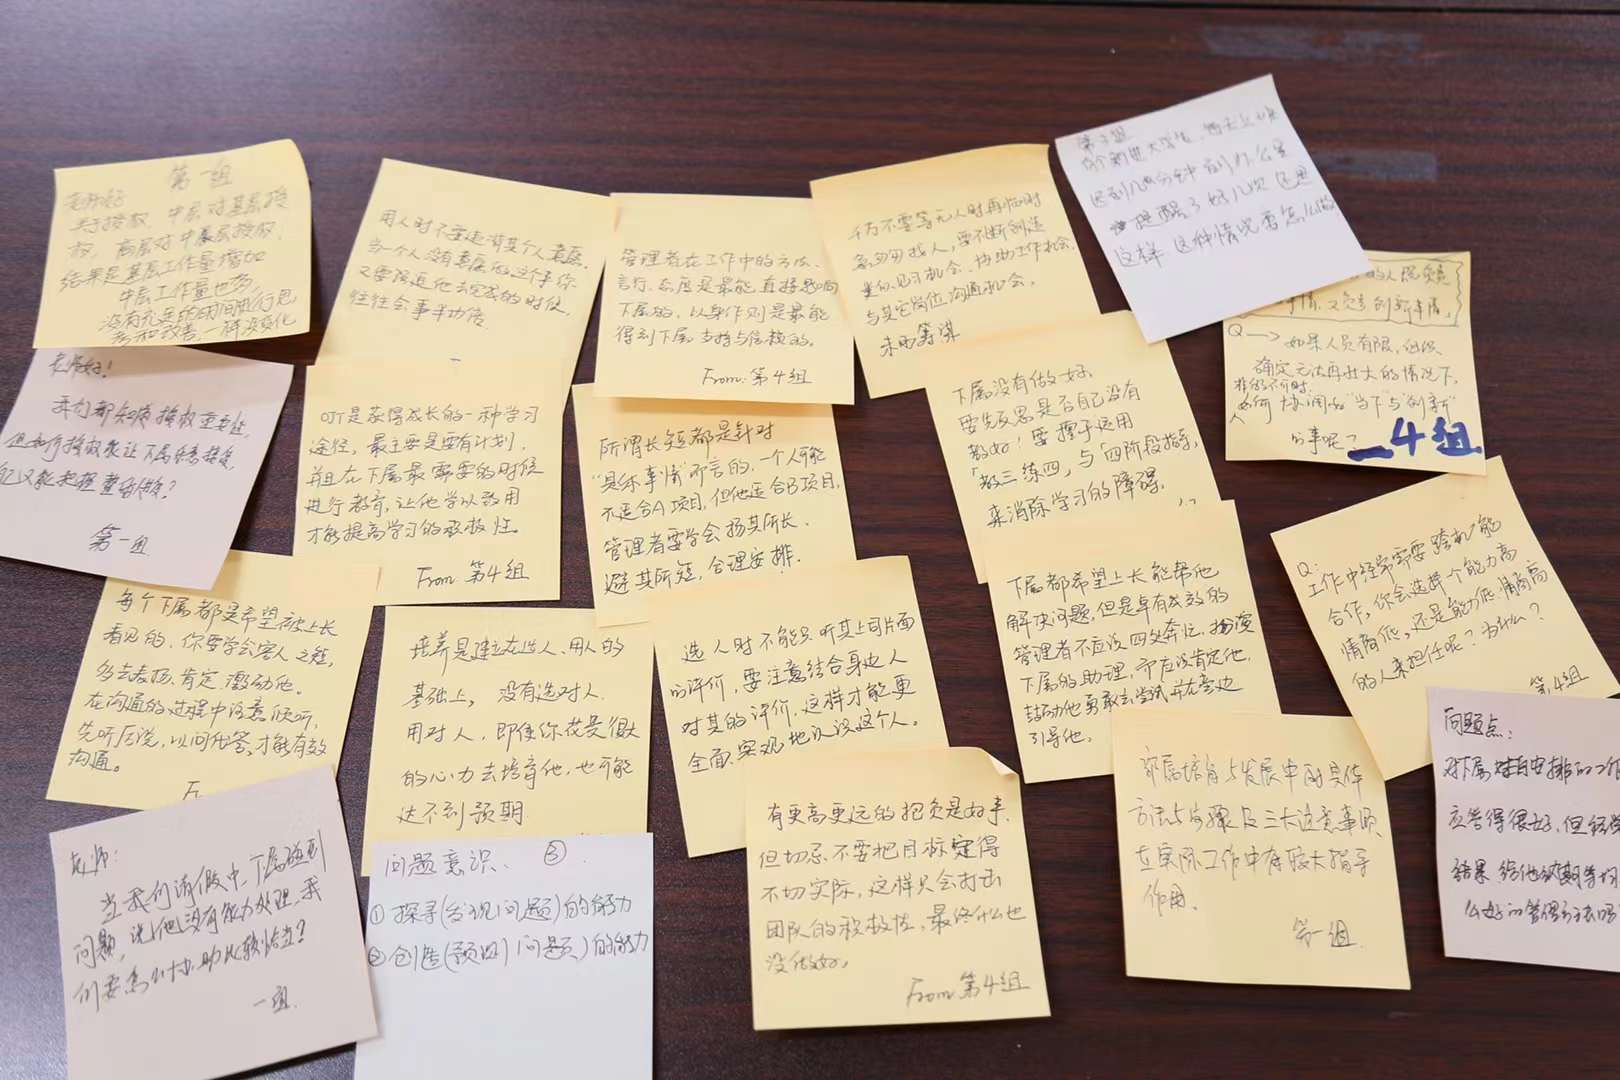 第一组
老师好
关于授权，中层对基层授
权，高层对中层授权，
结果是基层工作量增加
中层工作量也多，
没有充足的时间进行思
考和改善，一样没变化
用人时不要违背某个人意愿，
当一个人没有意愿做这个事你
又要强迫他去完成的时候，
往往会事半功倍
管理者在工作中的方法、
言行、态度是最能直接影响
下属的，以身作则是最能
得到下属支持与信赖的。
From 第4组
千万不要等无人时再临时
急匆匆找人，要不断创造
类似见习机会、协助工作机会、
与其它岗位沟通机会。
未雨筹谋
个刚进大学生，每天上班
迟到几分钟到办公室
提醒了好几次还是
这样，这种情况要怎么做
的人
又负责创新事情，
Q → 如果人员有限，但
确定无法再壮大的情况下，
如何协调好"当下与创新"
的事呢？
4组
老师好！
我们都知道授权重要性，
但如何授权能让下属乐意接受，
又能把握
第一组
OJT是获得成长的一种学习
途径，最主要是要有计划，
并且在下属最需要的时候
进行教育，让他学以致用
才能提高学习的积极性。
From 第4组
所谓长短都是针对
"具体事情"而言的，一个人可能
不适合A项目，但他适合B项目，
管理者要学会扬其所长，
避其所短，合理安排.
下属没有做好，
要先反思是否自己没有
教好！要擅于运用
"教三练四"与"四阶段指导"
来消除学习的障碍.
每个下属都是希望被上长
看见的，你要学会容人之短，
多去表扬、肯定、激励他。
在沟通的过程中注意倾听，
先听后说，以问代答，才能有效
沟通。
培养是建立在选人、用人的
基础上，没有选对人.
用对人，即使你花费很大
的心力去培育他，也可能
达不到预期
选人时不能只听其上司片面
的评价，要注意结合身边人
对其的评价，这样才能更
全面、客观地认识这个人。
下属都希望上长能帮他
解决问题，但是卓有成效的
管理者不应该四处奔忙，扮演
下属的助理，而应该肯定他，
鼓励他勇敢去尝试并在旁边
引导他.
Q:
工作中经常需要跨机能
合作，你会选择一个能力高
情商低，还是能力低、情商高
的人来担任呢？为什么？
第4组
问题点：
对下属对自安排的工作
应答得很好，但
结果给他
老师：
当我们请假中，下属碰到
问题，说他没有能力处理，我
们要怎么协助比较恰当？
一组
问题意识. ③
① 探寻(发现问题)的能力
② 创造(预测问题)的能力
有更高更远的抱负是好事，
但切忌不要把目标定得
不切实际，这样只会打击
团队的积极性，最终什么也
没做好。
From 第4组
部属培育与发展中的具体
方法与步骤及三大注意事项
在实际工作中有较大指导
作用.
第一组